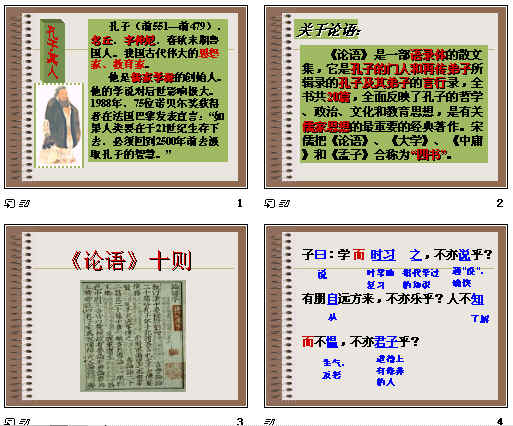 孔子其人
孔子（前551—前479），
名丘，字仲尼，春秋末期鲁
国人。我国古代伟大的思想
家、教育家。
他是儒家学派的创始人。
他的学说对后世影响极大。
1988年，75位诺贝尔奖获得
者在法国巴黎发表宣言：“如
果人类要在于21世纪生存下
去，必须回到2500年前去汲
取孔子的智慧。”
1
关于论语：
《论语》是一部语录体的散文
集，它是孔子的门人和再传弟子所
辑录的孔子及其弟子的言行录，全
书共20篇，全面反映了孔子的哲学
、政治、文化和教育思想，是有关
儒家思想的最重要的经典著作。宋
儒把《论语》、《大学》、《中庸
》和《孟子》合称为“四书”。
2
《论语》十则
3
子曰：学而时习之，不亦说乎？
说
时常地
复习
指代学过
的知识
通“悦”，
愉快
有朋自远方来，不亦乐乎？人不知
从
了解
而不愠，不亦君子乎？
生气，
发怒
道德上
有修养
的人
4